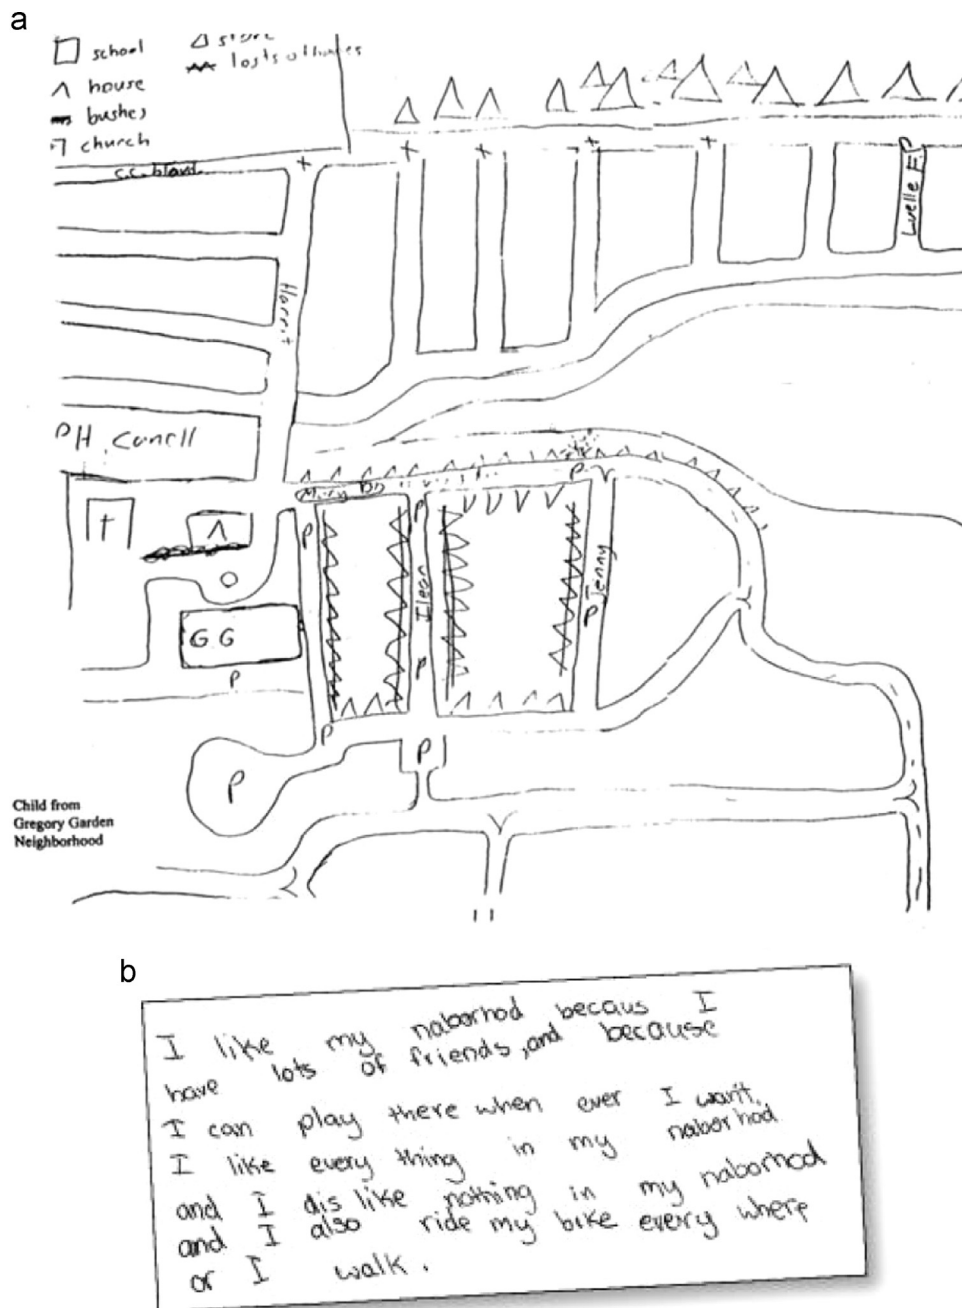 a
school
house
bushes
church
store
losts of homes
C.C. bland
Luelle
P
Harriet
PH. Conell
Mary Dr
P
P
P
Ilean
Jenny
P
P
G.G
P
P
P
P
Child from
Gregory Garden
Neighborhood
b
I like my naborhod becaus I
have lots of friends, and because
I can play there when ever I want.
I like every thing in my naborhod
and I dis like nothing in my naborhod
and I also ride my bike every where
or I walk.